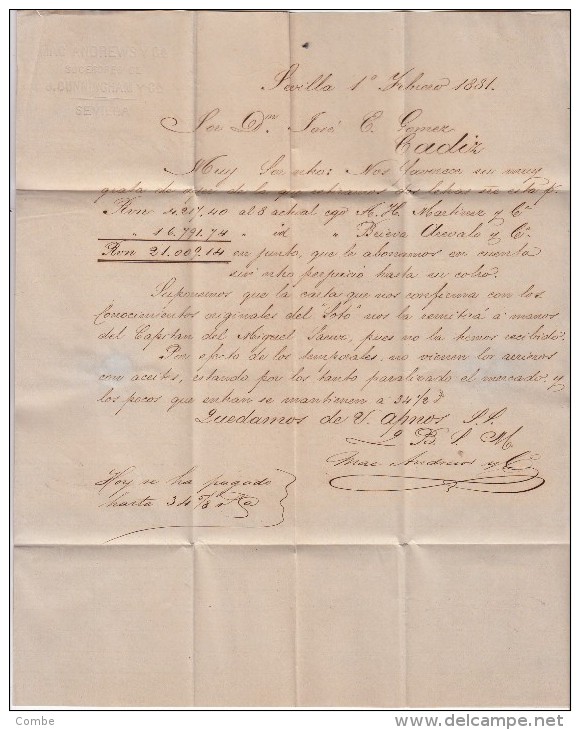 Mac ANDREWS Y Ca.
SUCESORES DE
J. CUNNINGHAM Y Ca.
SEVILLA
Sevilla 1º Febrero 1881.
Sor Dn José E. Gomez
Cadiz
Muy Sor ntro: Nos favorece su muy
grata de
Rvn 4.217,40 al 8 actual cgo A. H. Martinez y Ca
" 16.791,74 " id " Bueva Arevalo y Ca.
Rvn 21.009,14 en junto, que le abonamos en cuenta
sin ntro perjuicio hasta su cobro.
Suponemos que la carta que nos confirma con los
Conocimientos originales del "Soto" nos la remitirá á manos
del Capitan del Miguel Saenz, pues no la hemos recibido.
Por efecto de los temporales, no vienen los arrieros
con aceites, estando por lo tanto paralizado el mercado, y
los pocos que entran se mantienen a 34 1/2
Quedamos de V. afmos S.S.
Q B. S. M.
Mac Andrews y Ca
Hoy se ha pagado
hasta 34
Combe
www.delcampe.net